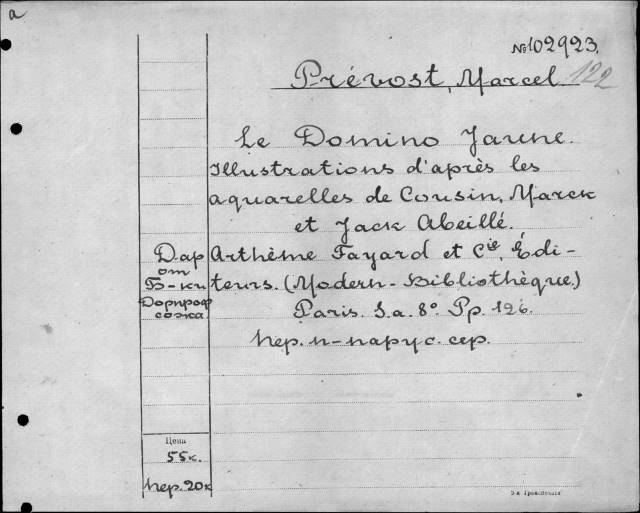 a
№102923.
Prévost, Marcel 122
Le Domino Jaune.
Illustrations d'après les
aquarelles de Cousin, Marck
et Jack Abeillé.
Arthème Fayard et Cie, Édi-
teurs. (Modern-Bibliothèque.)
Paris. S.a. 8°. Pp. 126.
пер. п-парус. сер.
Дар
от
Б-ки
Дорпроф
сожа
Цена
55к.
пер. 20к